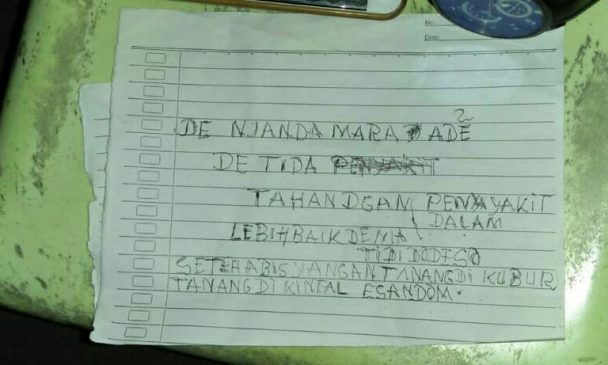 No.
Date:
DE NJANDA MARA ADE 2
DE TIDA
TAHAN DGAN PENYAKIT
DALAM
LEBIH BAIK DE MA
TI DI DODESO
SETEHABIS YANGAN TANANG DI KUBUR
TANANG DI KINTAL ESANDOM.